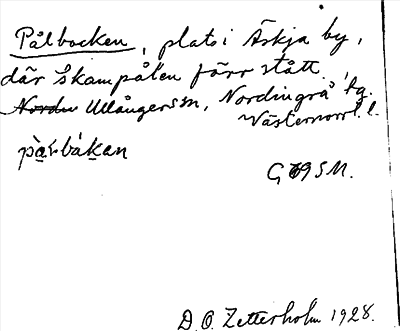 Pålbocken, plats i Äskja by,
där skampålen förr stått.
Nordin Ullånger sn, Nordingrå tg.
Västernorrl. l.
pa̱lbákan
G 69 SM.
D. O. Zetterholm 1928.